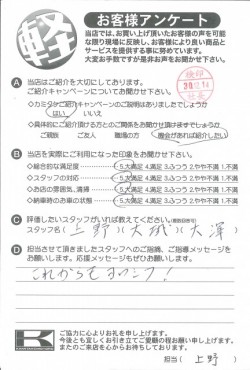 軽
お客様アンケート
当店では、お買い上げ頂いたお客様の声を可能
な限り現場に反映し、お客様により良い商品と
サービスを提供する事に努めています。
大変お手数ですが是非お声をお聞かせ下さい。
A 当店はご紹介を大切にしております。
ご紹介キャンペーンについてお聞かせ下さい。
◇カミタケご紹介キャンペーンのご説明はありましたでしょうか
はい いいえ
◇具体的にご紹介頂ける方とのご関係をお聞かせ頂けますでしょうか
ご親族 ご友人 職場の方 機会があれば紹介したい
B 当店を実際にご利用になった印象をお聞かせ下さい。
◇総合的な満足度 5.大満足 4.満足 3.ふつう 2.やや不満 1.不満
◇スタッフの対応 5.大満足 4.満足 3.ふつう 2.やや不満 1.不満
◇お店の雰囲気、清掃 5.大満足 4.満足 3.ふつう 2.やや不満 1.不満
◇納車時のお車の状態 5.大満足 4.満足 3.ふつう 2.やや不満 1.不満
C 評価したいスタッフがいれば教えてください。(複数回答可)
スタッフ名(上野)(大城)(大澤)
D 担当させて頂きましたスタッフへのご指摘、ご指導メッセージを
お願いします。応援メッセージもぜひお願いします。
これからもヨロシク!
K
ご協力に心よりお礼を申し上げます。
今後とも宜しくお引き立てご愛顧の程お願い申し上げます。
またのご来店を心からお待ちしております。
担当(上野)